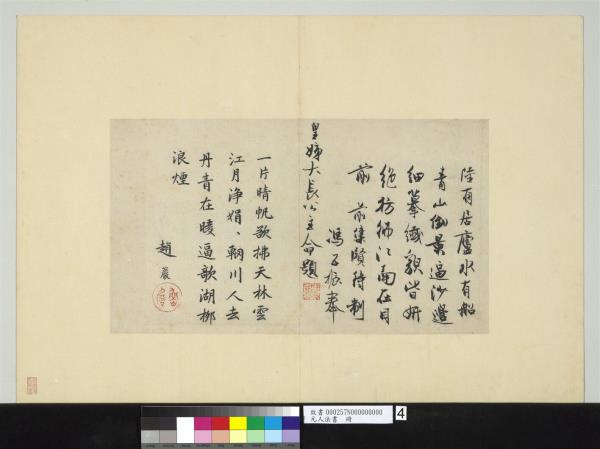 陸有居廬水有船
青山倒景逼沙邊
細摹緻貌皆妍
絕彷彿江南在目
前 前集賢待制
馮子振奉
皇姊大長公主命題
一片晴帆欲拂天林雲
江月淨娟、輞川人去
丹青在暖逼歌湖柳
浪煙
趙巖
故書000257N000000000
元人法書 冊
4